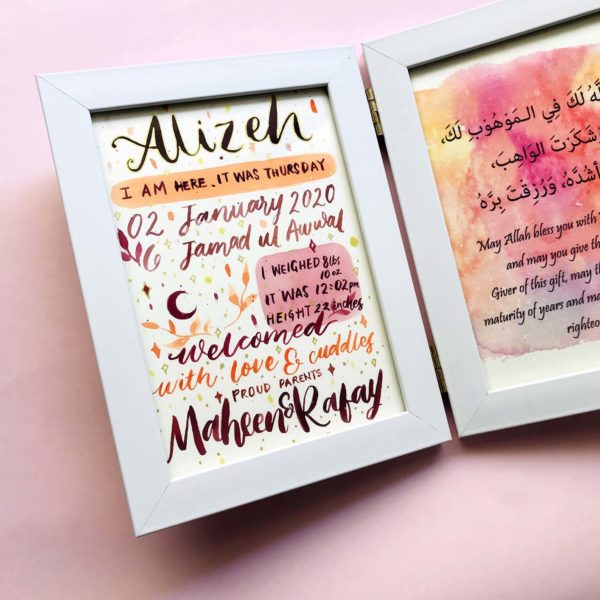 Alizeh
I AM HERE. IT WAS THURSDAY
02 January 2020
06 Jamad ul Awwal
I WEIGHED 8lbs
10oz
IT WAS 12:02pm
HEIGHT 22 inches
welcomed
with love & cuddles
PROUD PARENTS
Maheen & Rafay
لَكَ فِي الْمَوْهُوبِ لَكَ،
شَكَرْتَ الوَاهِبَ،
أَشُدَّهُ، وَرُزِقْتَ بِرَّهُ
May Allah bless you with
and may you give th
Giver of this gift, may th
maturity of years and ma
righteo